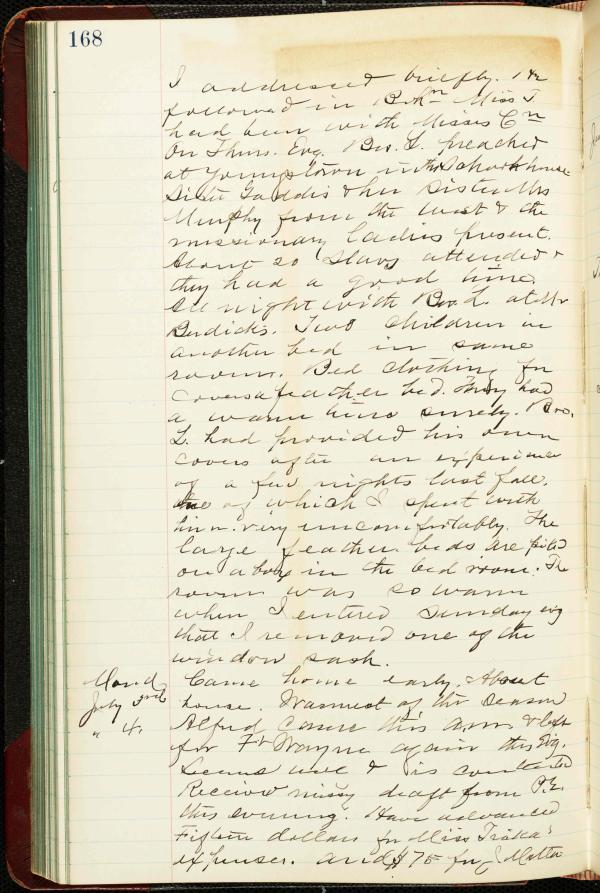 168
I addressed briefly. He
followed in Bohn Miss T.
had been with Misses Cn
On Thurs. Evg. Bro. L. preached
at Youngstown in the School house
Sister Gaddis & her Sister Mrs
Murphy from the west & the
missionary ladies present.
About 20 Slavs attended &
they had a good time,
all night with Bro. L. at Mr
Budicks. Two children in
another bed in same
room. Bed clothing for
covers a feather bed. They had
a warm time surely. Bro.
L. had provided his own
covers after an experience
of a few nights last fall,
one of which I spent with
him very uncomfortably. The
large feather beds are piled
on a box in the bed room. The
room was so warm
when I entered Sunday evg
that I removed one of the
window sash.
Mond Came home early. About
July 3rd house. Warmest of the Season
" 4. Alfred came this a.m. & left
for Ft Wayne again this Evg.
Seems well & is contented
Received missy draft from P.E.
this evening. Have advanced
Fifteen dollars for Miss
expenses. and $75 for